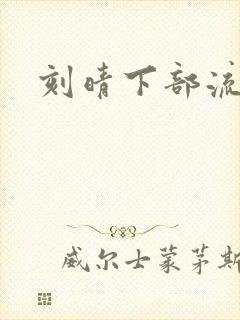 刻晴下部流
威尔士蒙茅斯